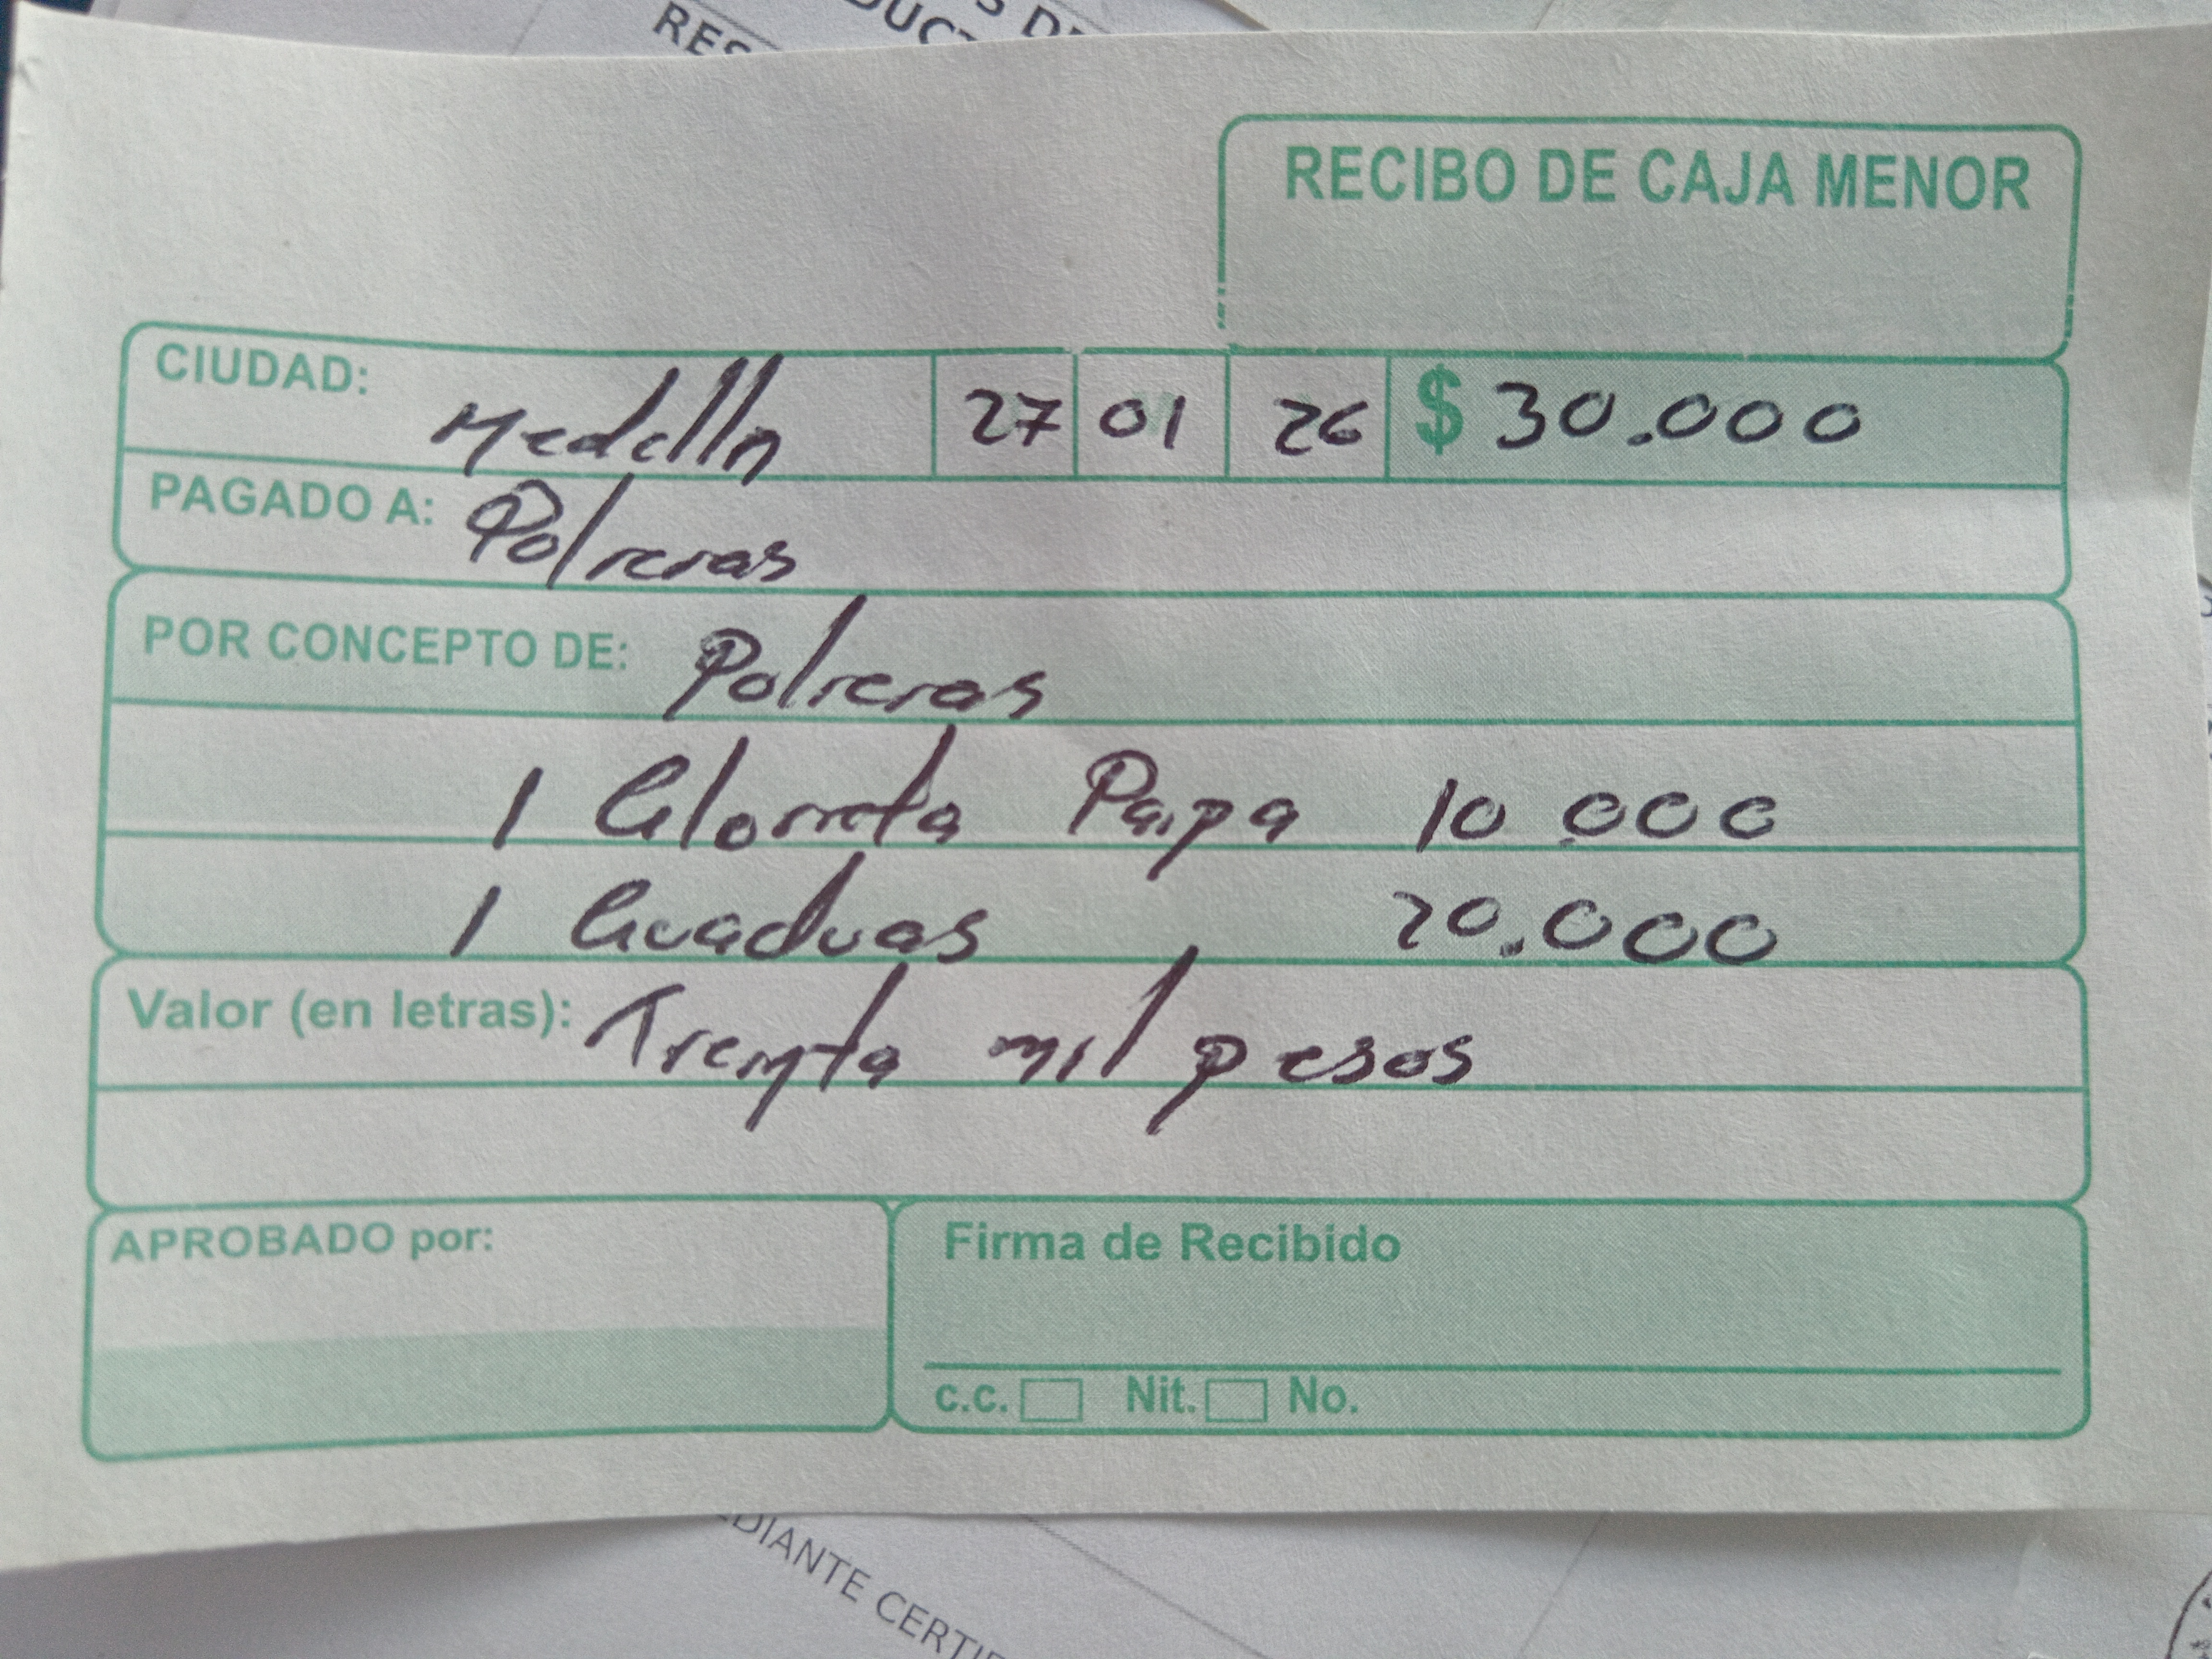 RECIBO DE CAJA MENOR
CIUDAD: Medelln 27 01 26 $ 30.000
PAGADO A: Polreras
POR CONCEPTO DE: Polreras
1 Glorreta Paipa 10.000
1 Guaduas 20.000
Valor (en letras): Treynta mil pesos
APROBADO por:
Firma de Recibido
c.c. Nit. No.
EDIANTE CERTIF